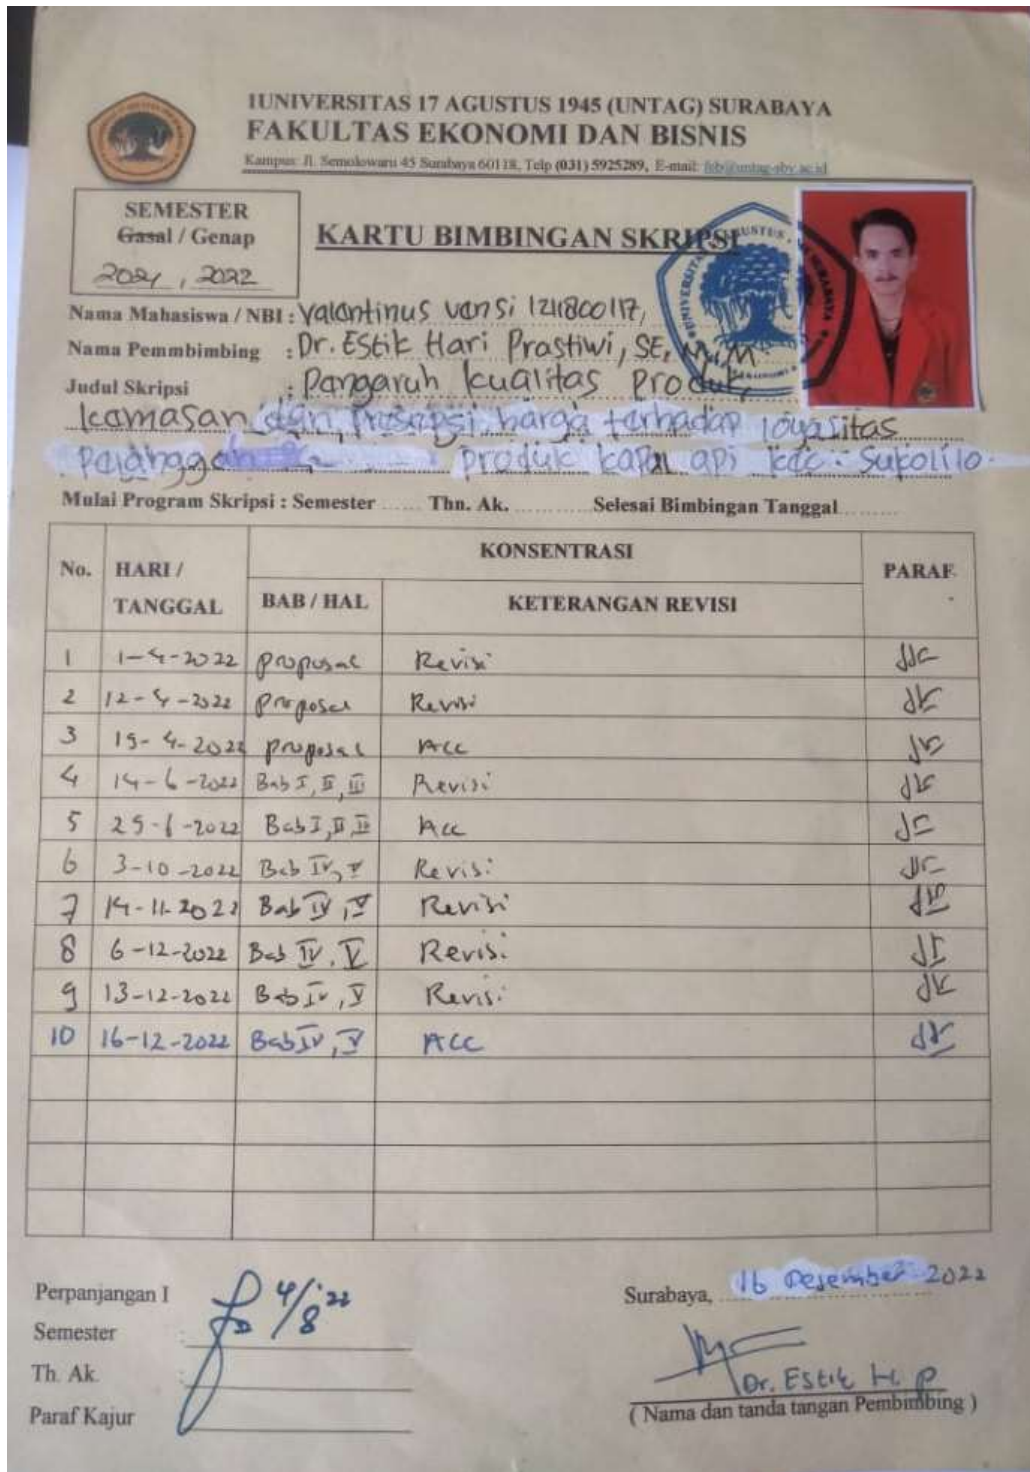 1UNIVERSITAS 17 AGUSTUS 1945 (UNTAG) SURABAYA
FAKULTAS EKONOMI DAN BISNIS
Kampus: Jl. Semolowaru 45 Surabaya 60118, Telp (031) 5925289, E-mail: feb@untag-sby.ac.id
SEMESTER
Gasal / Genap
2021, 2022
KARTU BIMBINGAN SKRIPSI
Nama Mahasiswa / NBI : Valentinus vensi 1211800117,
Nama Pemmbimbing : Dr. Estik Hari Prastiwi, SE, M.M.
Judul Skripsi : Pengaruh kualitas Produk,
kemasan dan Presepsi harga terhadap loyasitas
Pelanggan produk kapal api kec. Sukolilo.
Mulai Program Skripsi : Semester ...... Thn. Ak. ............ Selesai Bimbingan Tanggal.........
No. HARI / TANGGAL KONSENTRASI PARAF
BAB / HAL KETERANGAN REVISI
1 1-4-2022 proposal Revisi
2 12-4-2022 proposal Revisi
3 19-4-2022 proposal ACC
4 14-6-2022 Bab I, II, III Revisi
5 25-6-2022 Bab I, II, III Acc
6 3-10-2022 Bab IV, V Revisi
7 14-11-2022 Bab IV, V Revisi
8 6-12-2022 Bab IV, V Revisi
9 13-12-2022 Bab IV, V Revisi
10 16-12-2022 Bab IV, V ACC
Perpanjangan I 4/8 '22
Surabaya, 16 Desember 2022
Semester :
Th. Ak. :
Dr. Estik H. P
Paraf Kajur
( Nama dan tanda tangan Pembimbing )